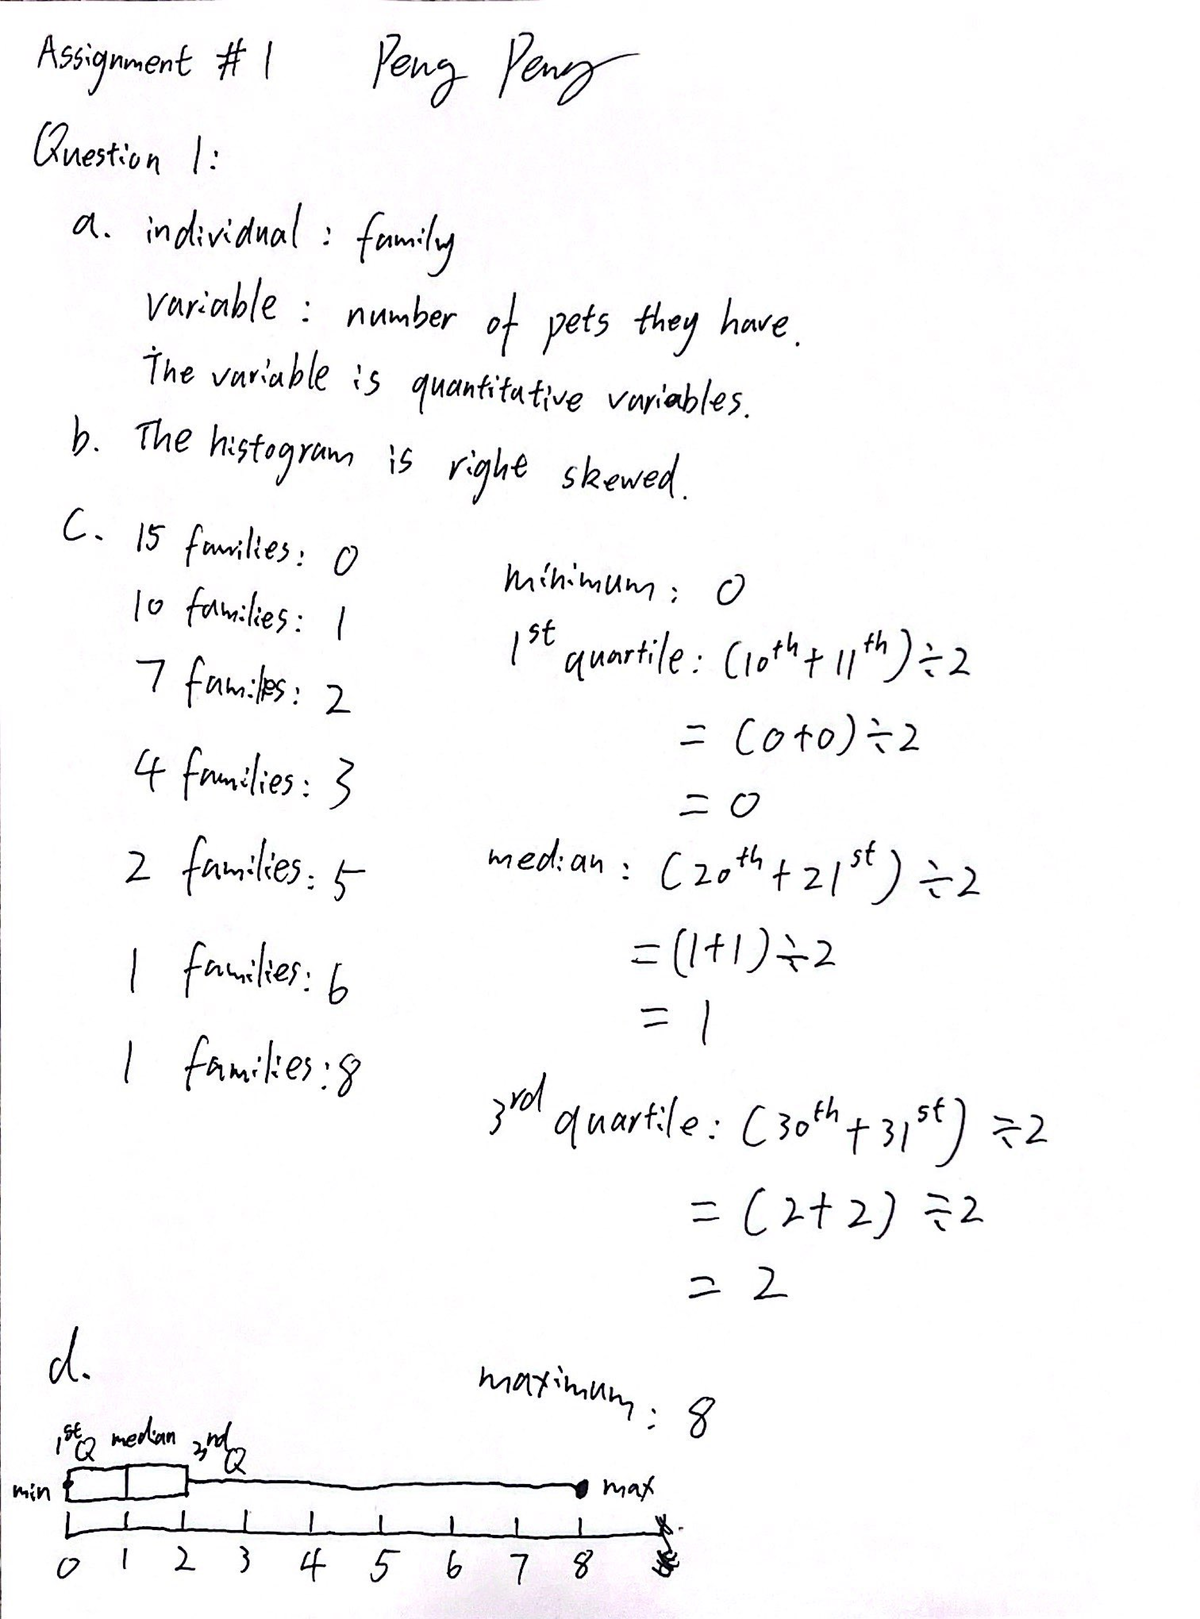 Assignment #1 Peng Peng
Question 1:
a. individual : family
variable : number of pets they have.
The variable is quantitative variables.
b. The histogram is right skewed.
C. 15 families: 0
10 families: 1
7 families: 2
4 families: 3
2 families: 5
1 families: 6
1 families: 8
minimum: 0
1st quartile: (10th+11th)÷2
= (0+0)÷2
= 0
median: (20th+21st)÷2
=(1+1)÷2
= 1
3rd quartile: (30th+31st)÷2
= (2+2)÷2
= 2
maximum: 8
d.
1st Q median 3nd Q
min max
0 1 2 3 4 5 6 7 8